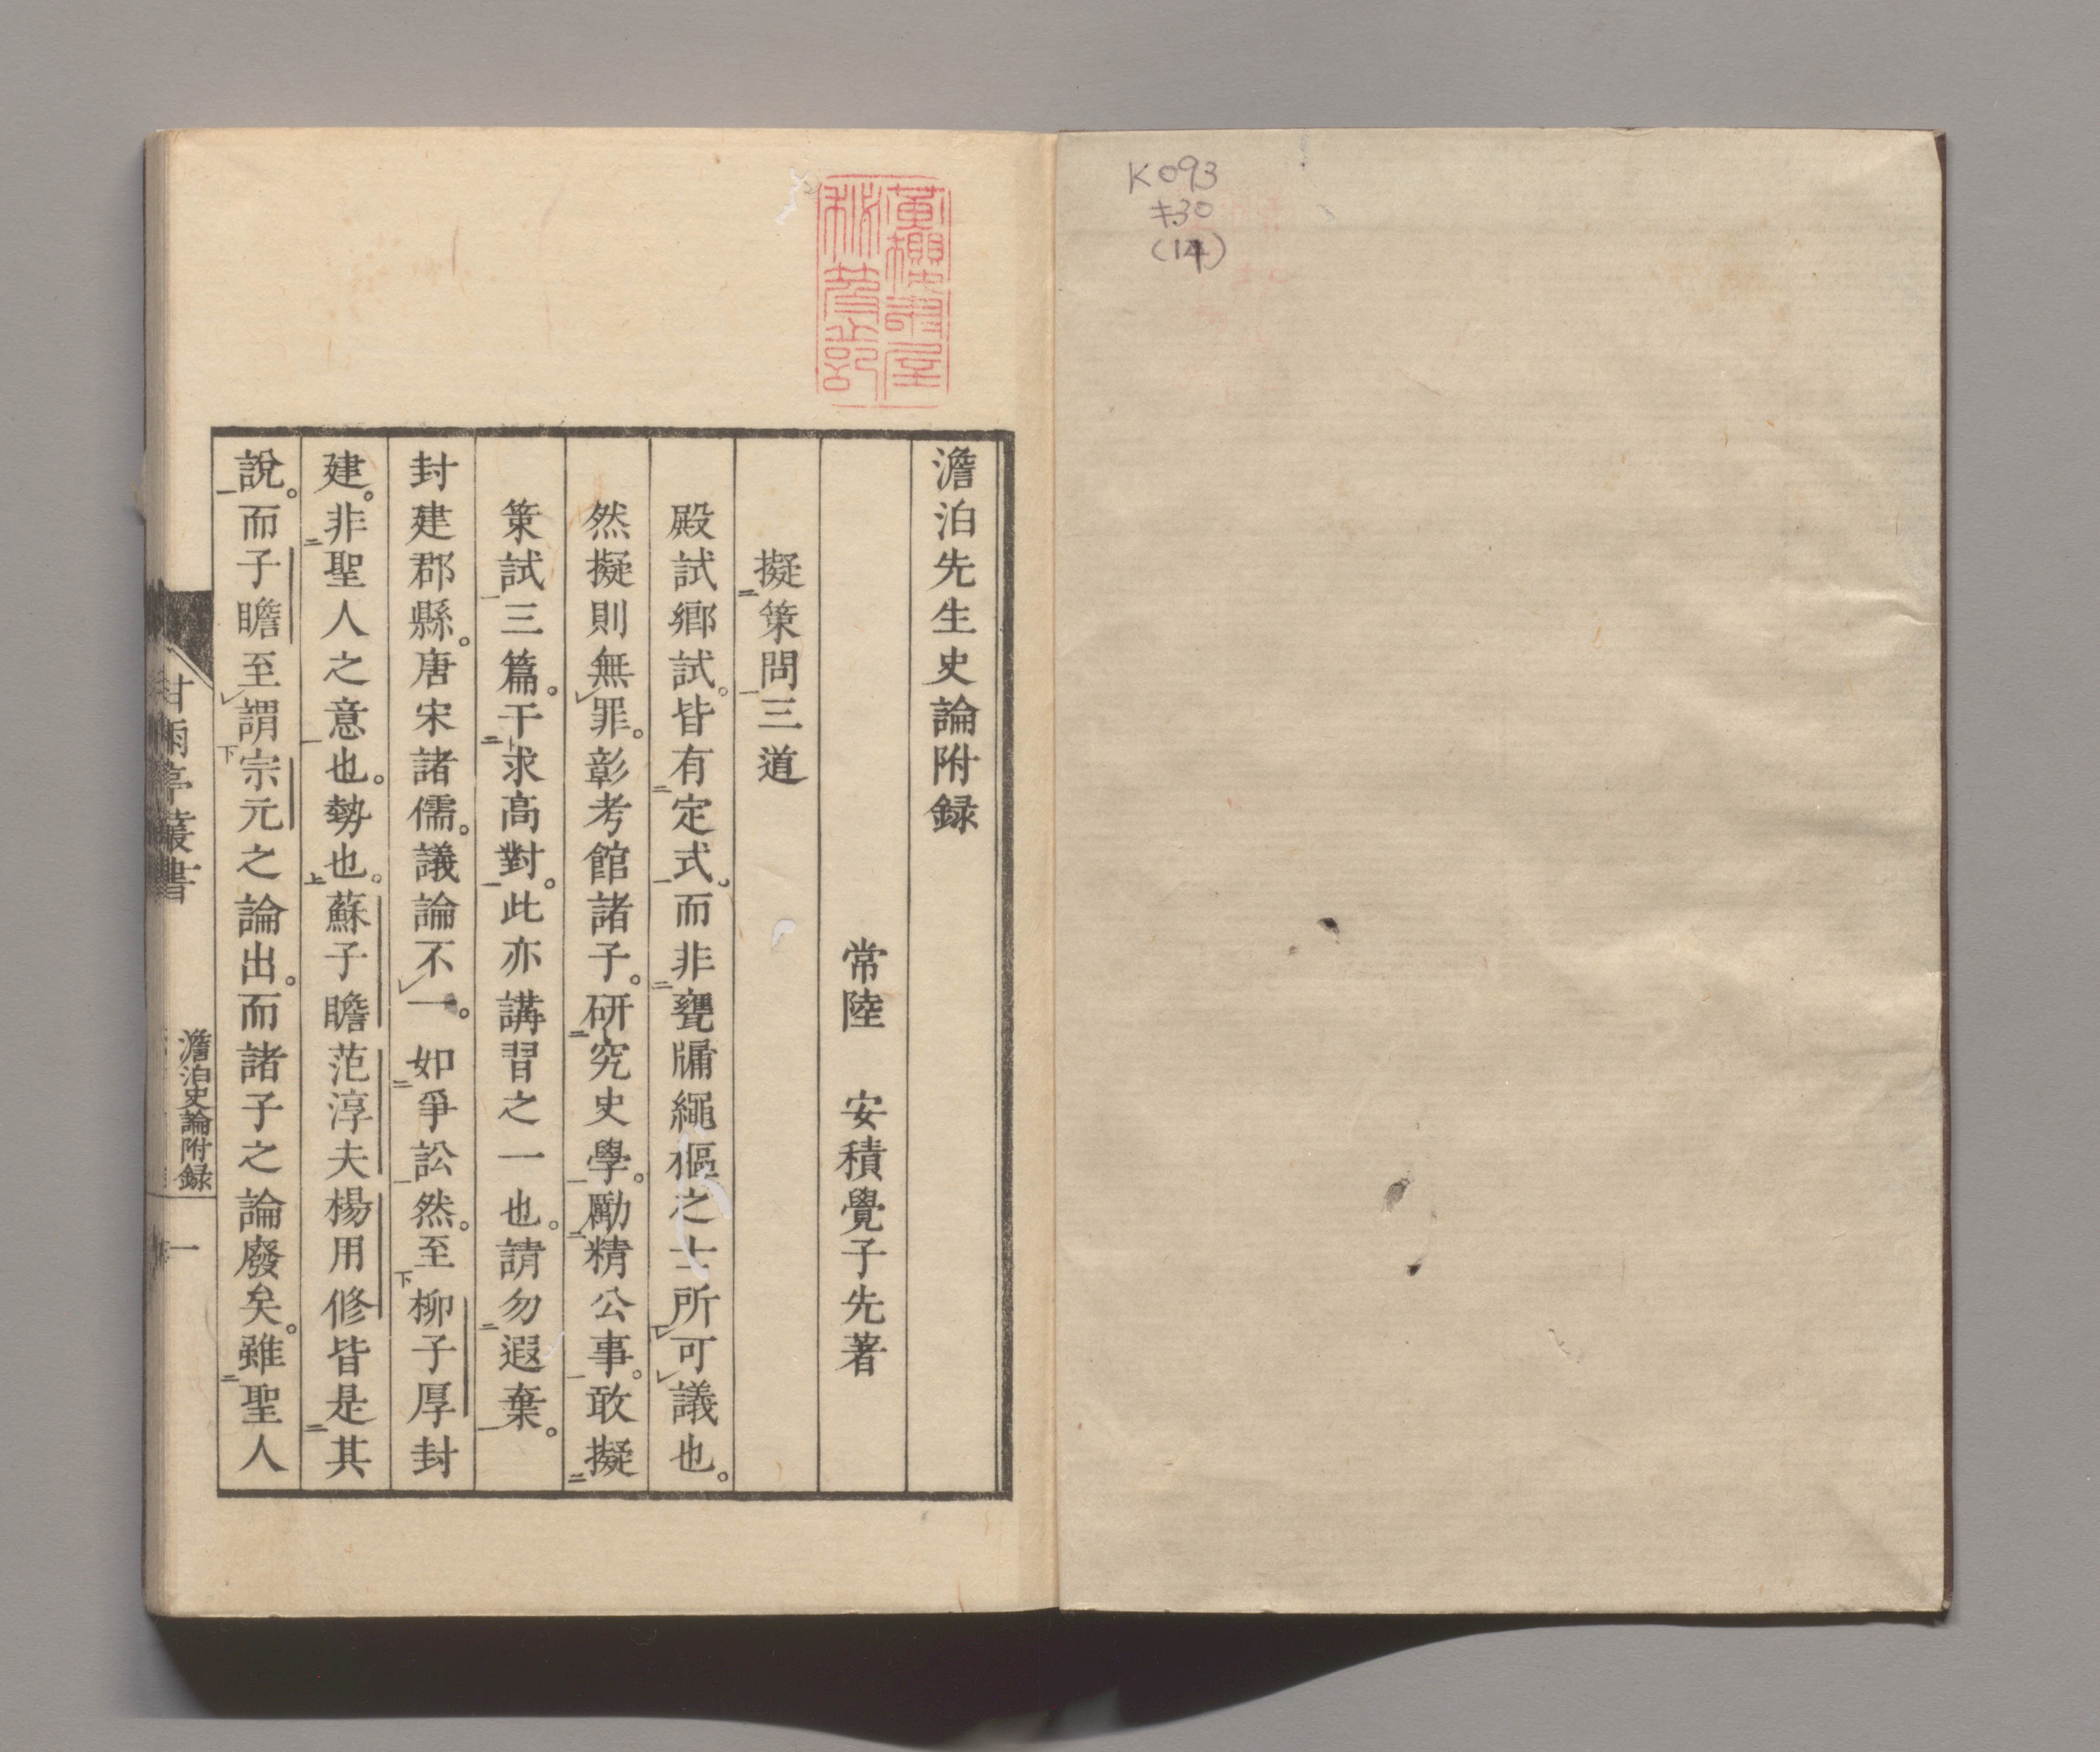 K093
キ30
(14)
澹泊先生史論附録
常陸　安積覺子先著
擬策問三道
殿試鄉試。皆有定式。而非甕牖繩樞之士所可議也。
然擬則無罪。彰考館諸子。研究史學。勵精公事。敢擬
策試三篇。干求高對。此亦講習之一也。請勿遐棄。
封建郡縣。唐宋諸儒。議論不一。如爭訟然。至柳子厚封
建。非聖人之意也。勢也。蘇子瞻范淳夫楊用修皆是其
說。而子瞻至謂宗元之論出。而諸子之論廢矣。雖聖人
甘雨亭叢書
澹泊史論附録
一